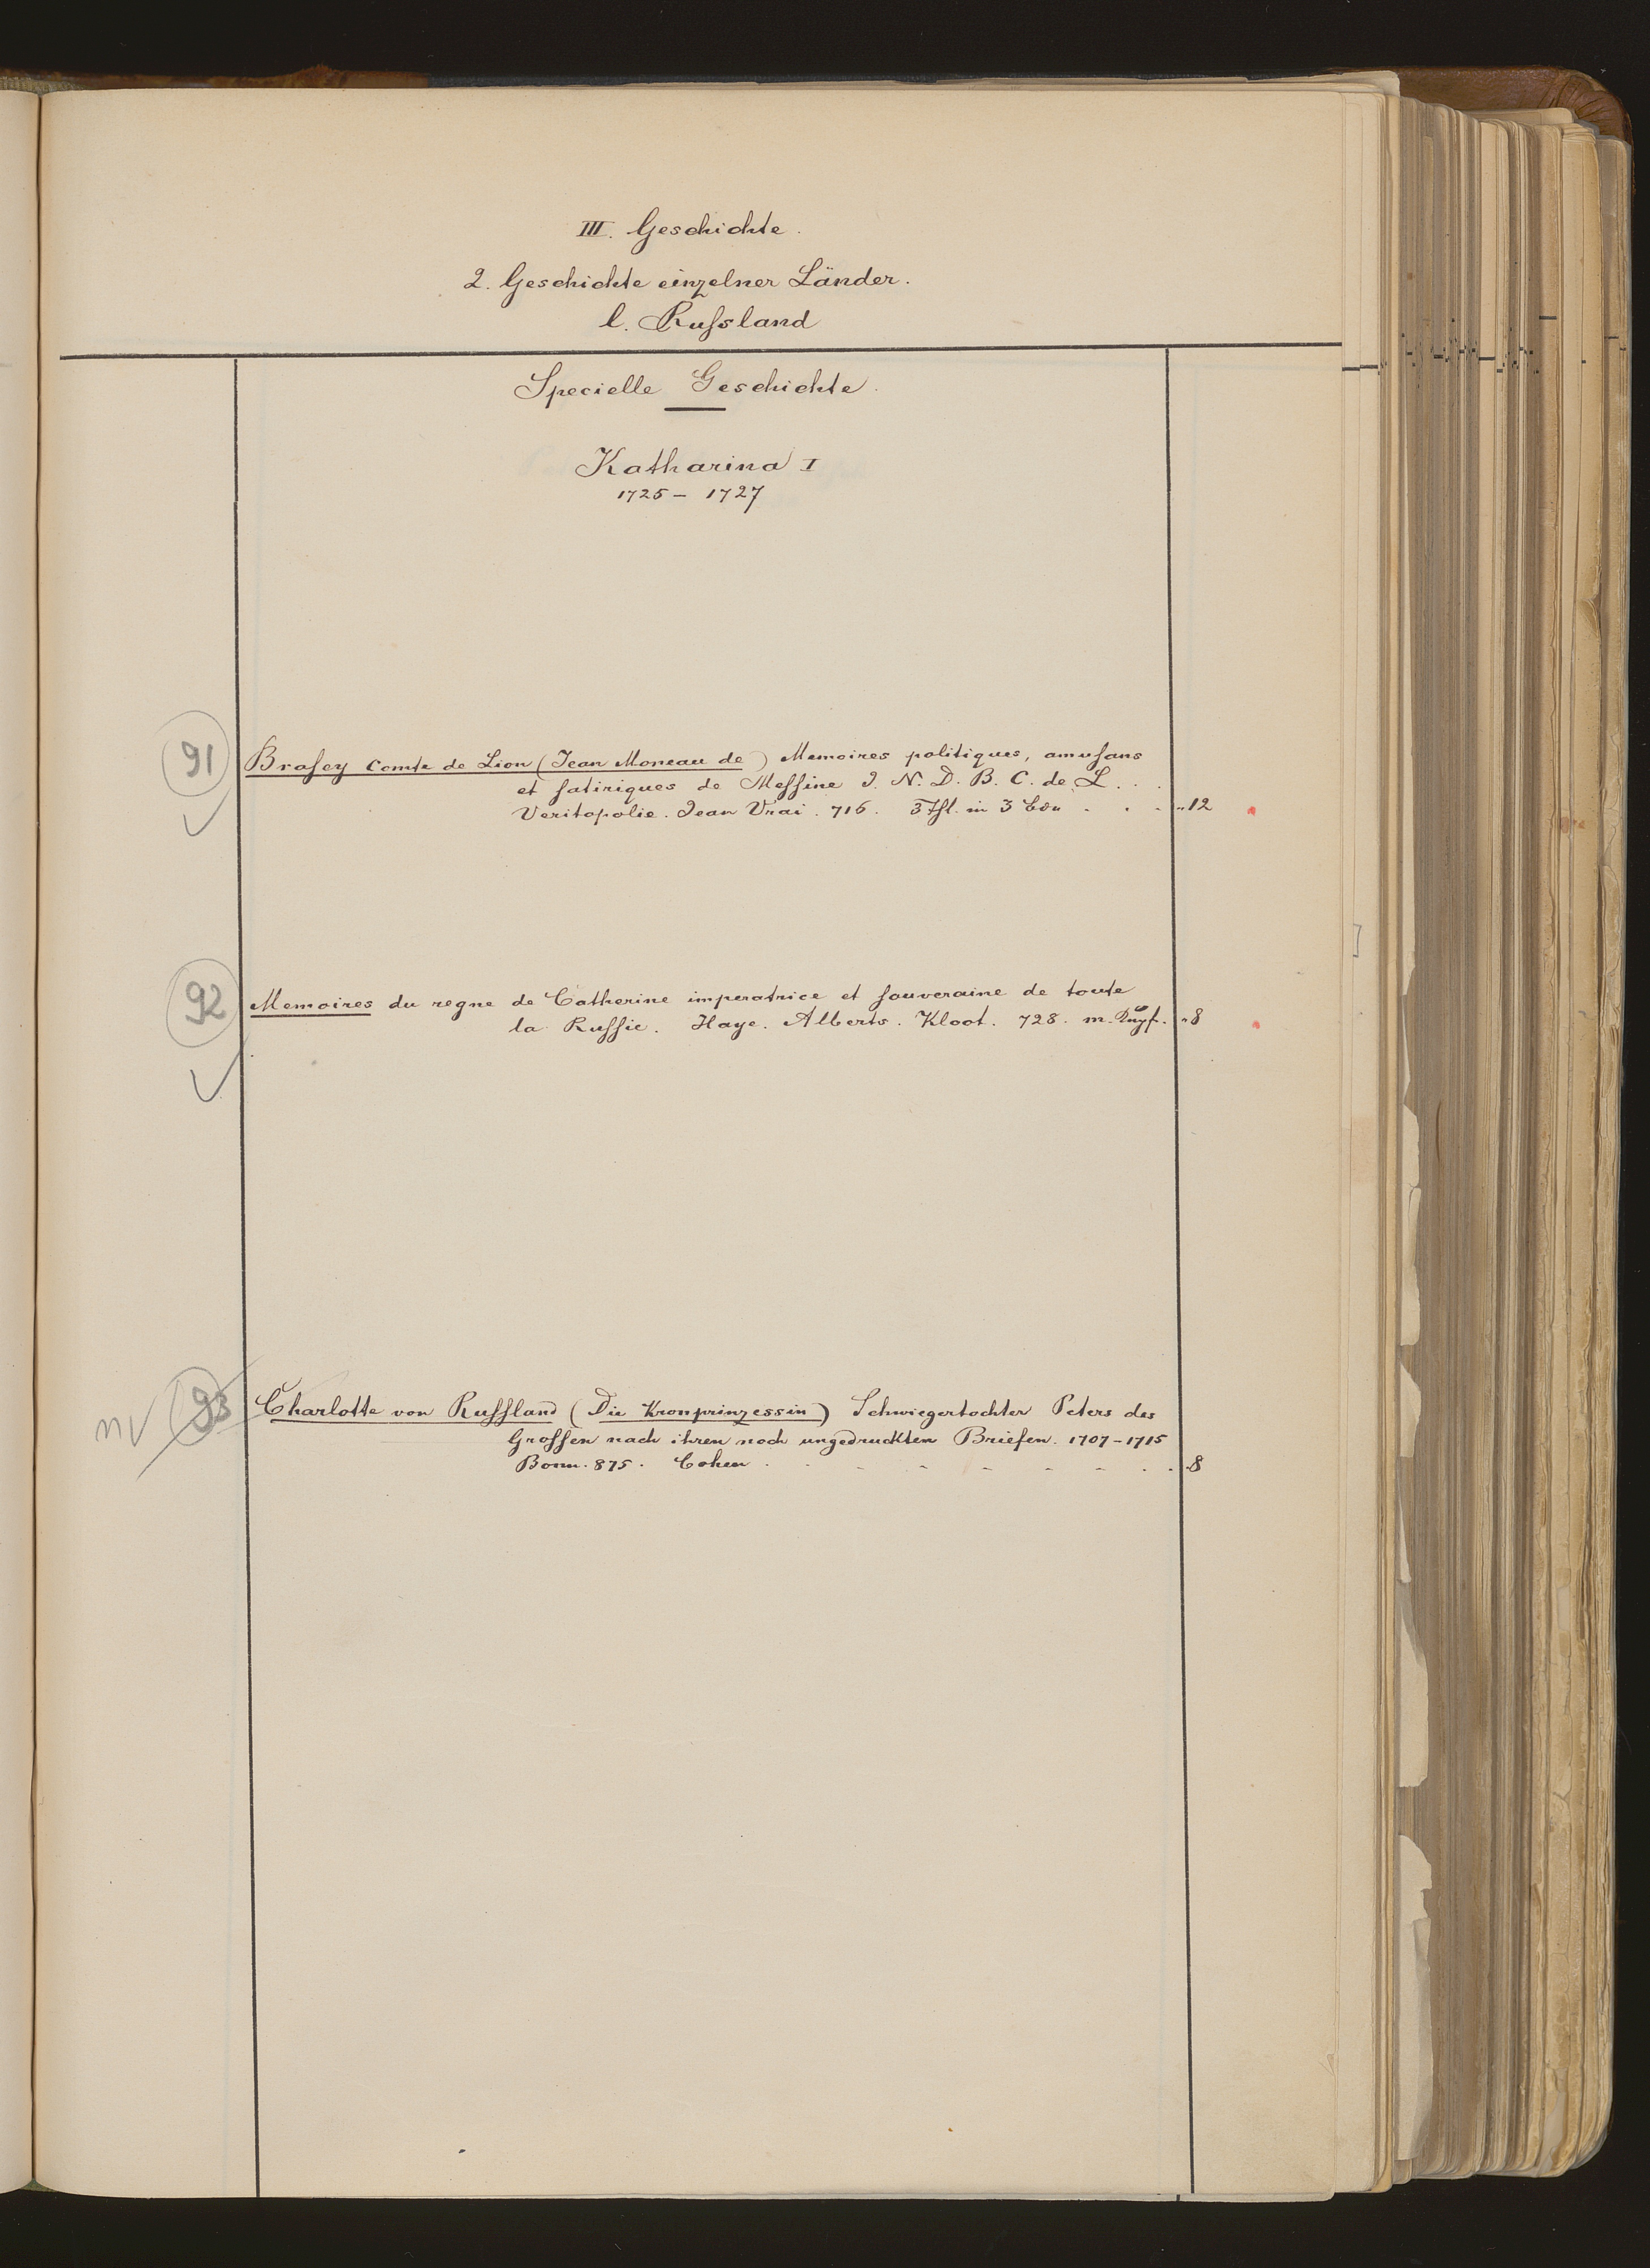 III. Geschichte.
2. Geschichte einzelner Länder.
l. Rußland
Specielle Geschichte.
Katharina I
1725 – 1727
91 Brasey Comte de Lion (Jean Moneau de) Memoires politiques, amusans
et satiriques de Messine J. N. D. B. C. de L . . .
Veritopolie. Jean Vrai. 716. 3 Thl. in 3 Bdn . . . "12
92 Memoires du regne de Catherine imperatrice et souveraine de toute
la Russie. Haye. Alberts. Kloot. 728. m. "8
nv 93 Charlotte von Russland (Die Kronprinzessin) Schwiegertochter Peters des
Grossen nach ihren noch ungedruckten Briefen. 1707–1715
Bonn. 875. Cohen . . . . . . . . 8